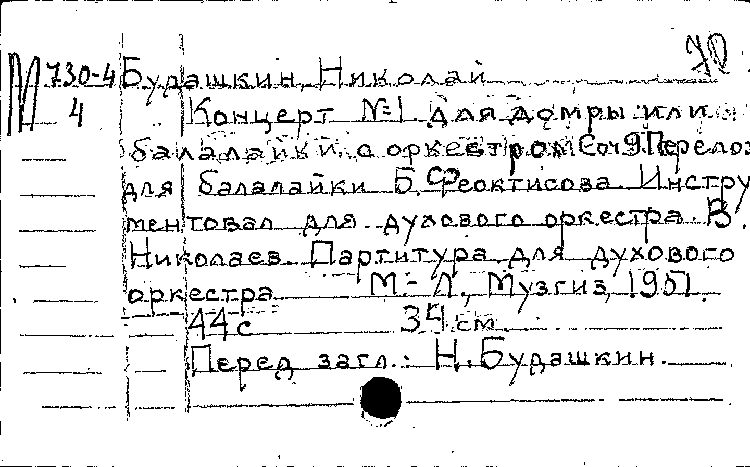 70
М 730-4 Будашкин, Николай
4 Концерт №1 для домры или
балалайки с оркестром Соч 9 Перелож
для балалайки Б. Феоктисова Инстру
ментовал для духового оркестра В.
Николаев. Партитура для духового
оркестра М.-Л., Музгиз, 1951.
44 с 34 см.
Перед загл.: Н. Будашкин.